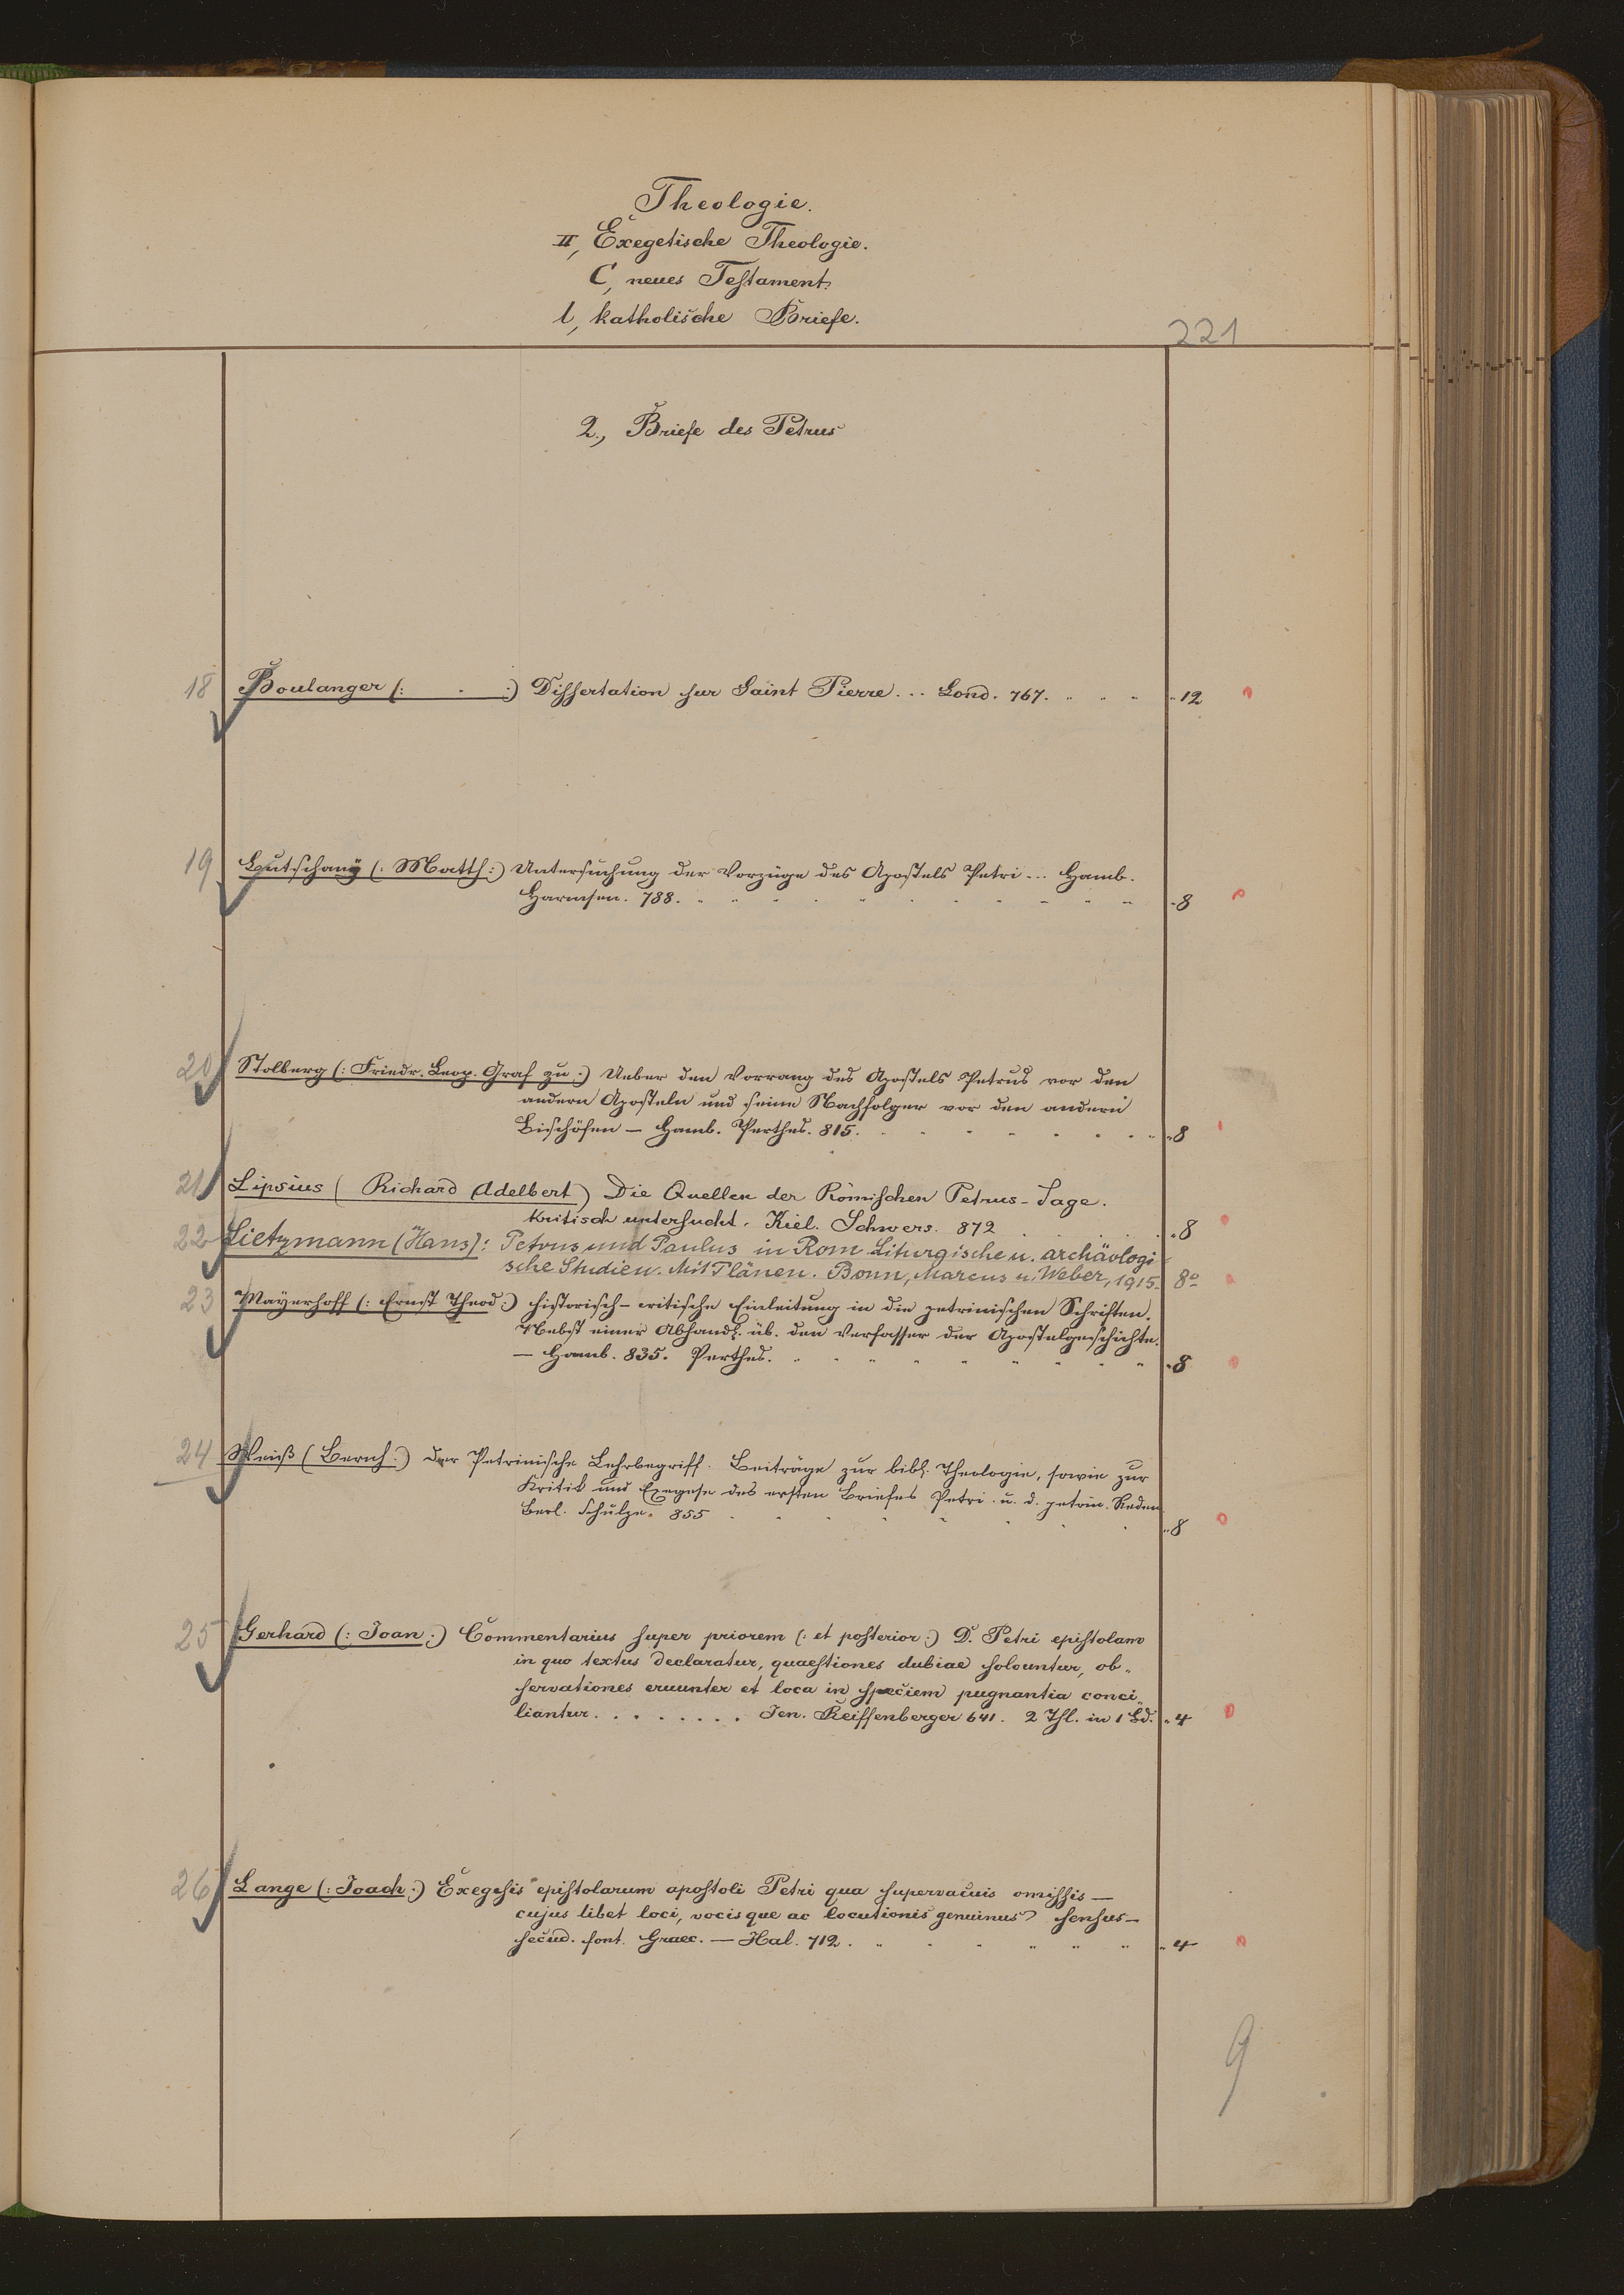 Theologie.
II, Exegetische Theologie.
C, neues Testament.
l, katholische Briefe.
221
2., Briefe des Petrus
18 Boulanger (: . :) Dissertation sur Saint Pierre... Lond. 767. " 12
19 Lutschany (: Matth:) Untersuchung der Vorzüge des Apostels Petri... Hamb.
Harmsen. 788. " 8
20 Stolberg (: Friedr. Leop. Graf zu :) Ueber den Vorrang des Apostels Petrus vor den
andern Aposteln und seine Nachfolger vor den andern
Bischöfen – Hamb. Perthes. 815. " 8
21 Lipsius ( Richard Adelbert) Die Quellen der Römischen Petrus-Sage.
Kritisch untersucht. Kiel. Schwers. 872 " 8
22 Lietzmann (Hans): Petrus und Paulus in Rom. Liturgische u. archäologi
sche Studien. Mit Plänen. Bonn, Marcus u. Weber, 1915. 8°
23 Mayerhoff (: Ernst Theod :) historisch-critische Einleitung in die petrinischen Schriften.
Nebst einer Abhandl. üb. den Verfasser der Apostelgeschichte.
— Hamb. 835. Perthes. " 8
24 Weiß ( Bernh :) der Petrinische Lehrbegriff. Beiträge zur bibl. Theologie, sowie zur
Kritik und Exegese des ersten Briefes Petri u. d. petrin. Reden
Berl. Schulze. 855 " 8
25 Gerhard (: Joan :) Commentarius super priorem (: et posterior :) D. Petri epistolam
in quo textus declaratur, quaestiones dubiae solvuntur, ob„
servationes eruunter et loca in speciem pugnantia conci„
liantur. . . . . . . . Jen. Reiffenberger 641. 2 Thl. in 1 Bd. " 4
26 Lange (: Joach :) Exegesis epistolarum apostoli Petri qua supervacuis omissis —
cujus libet loci, vocisque ac locutionis genuinus sensus —
secud. font. Graec. — Hal. 712. " 4
9